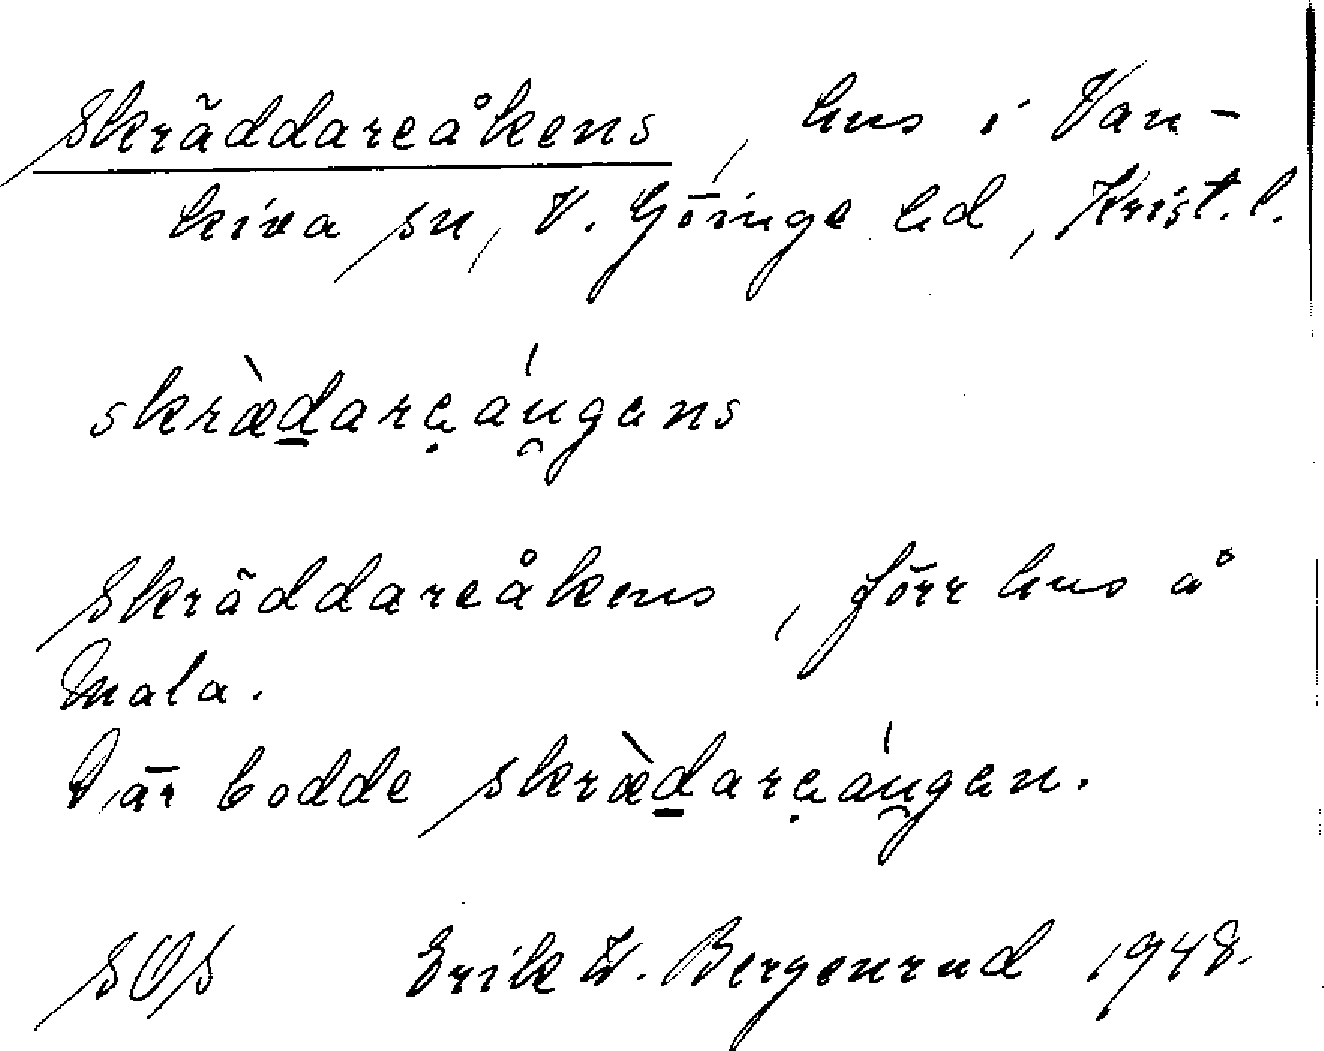 Skräddareåkens, hus i Van-
kiva sn, V. Göinge hd, Krist. l.
skræ̀d̲arẹáu̯gens
Skräddareåkens, förr hus å
Mala.
Där bodde skræ̀d̲arẹáu̯gen.
SOS Erik W. Bergenrud 1948.